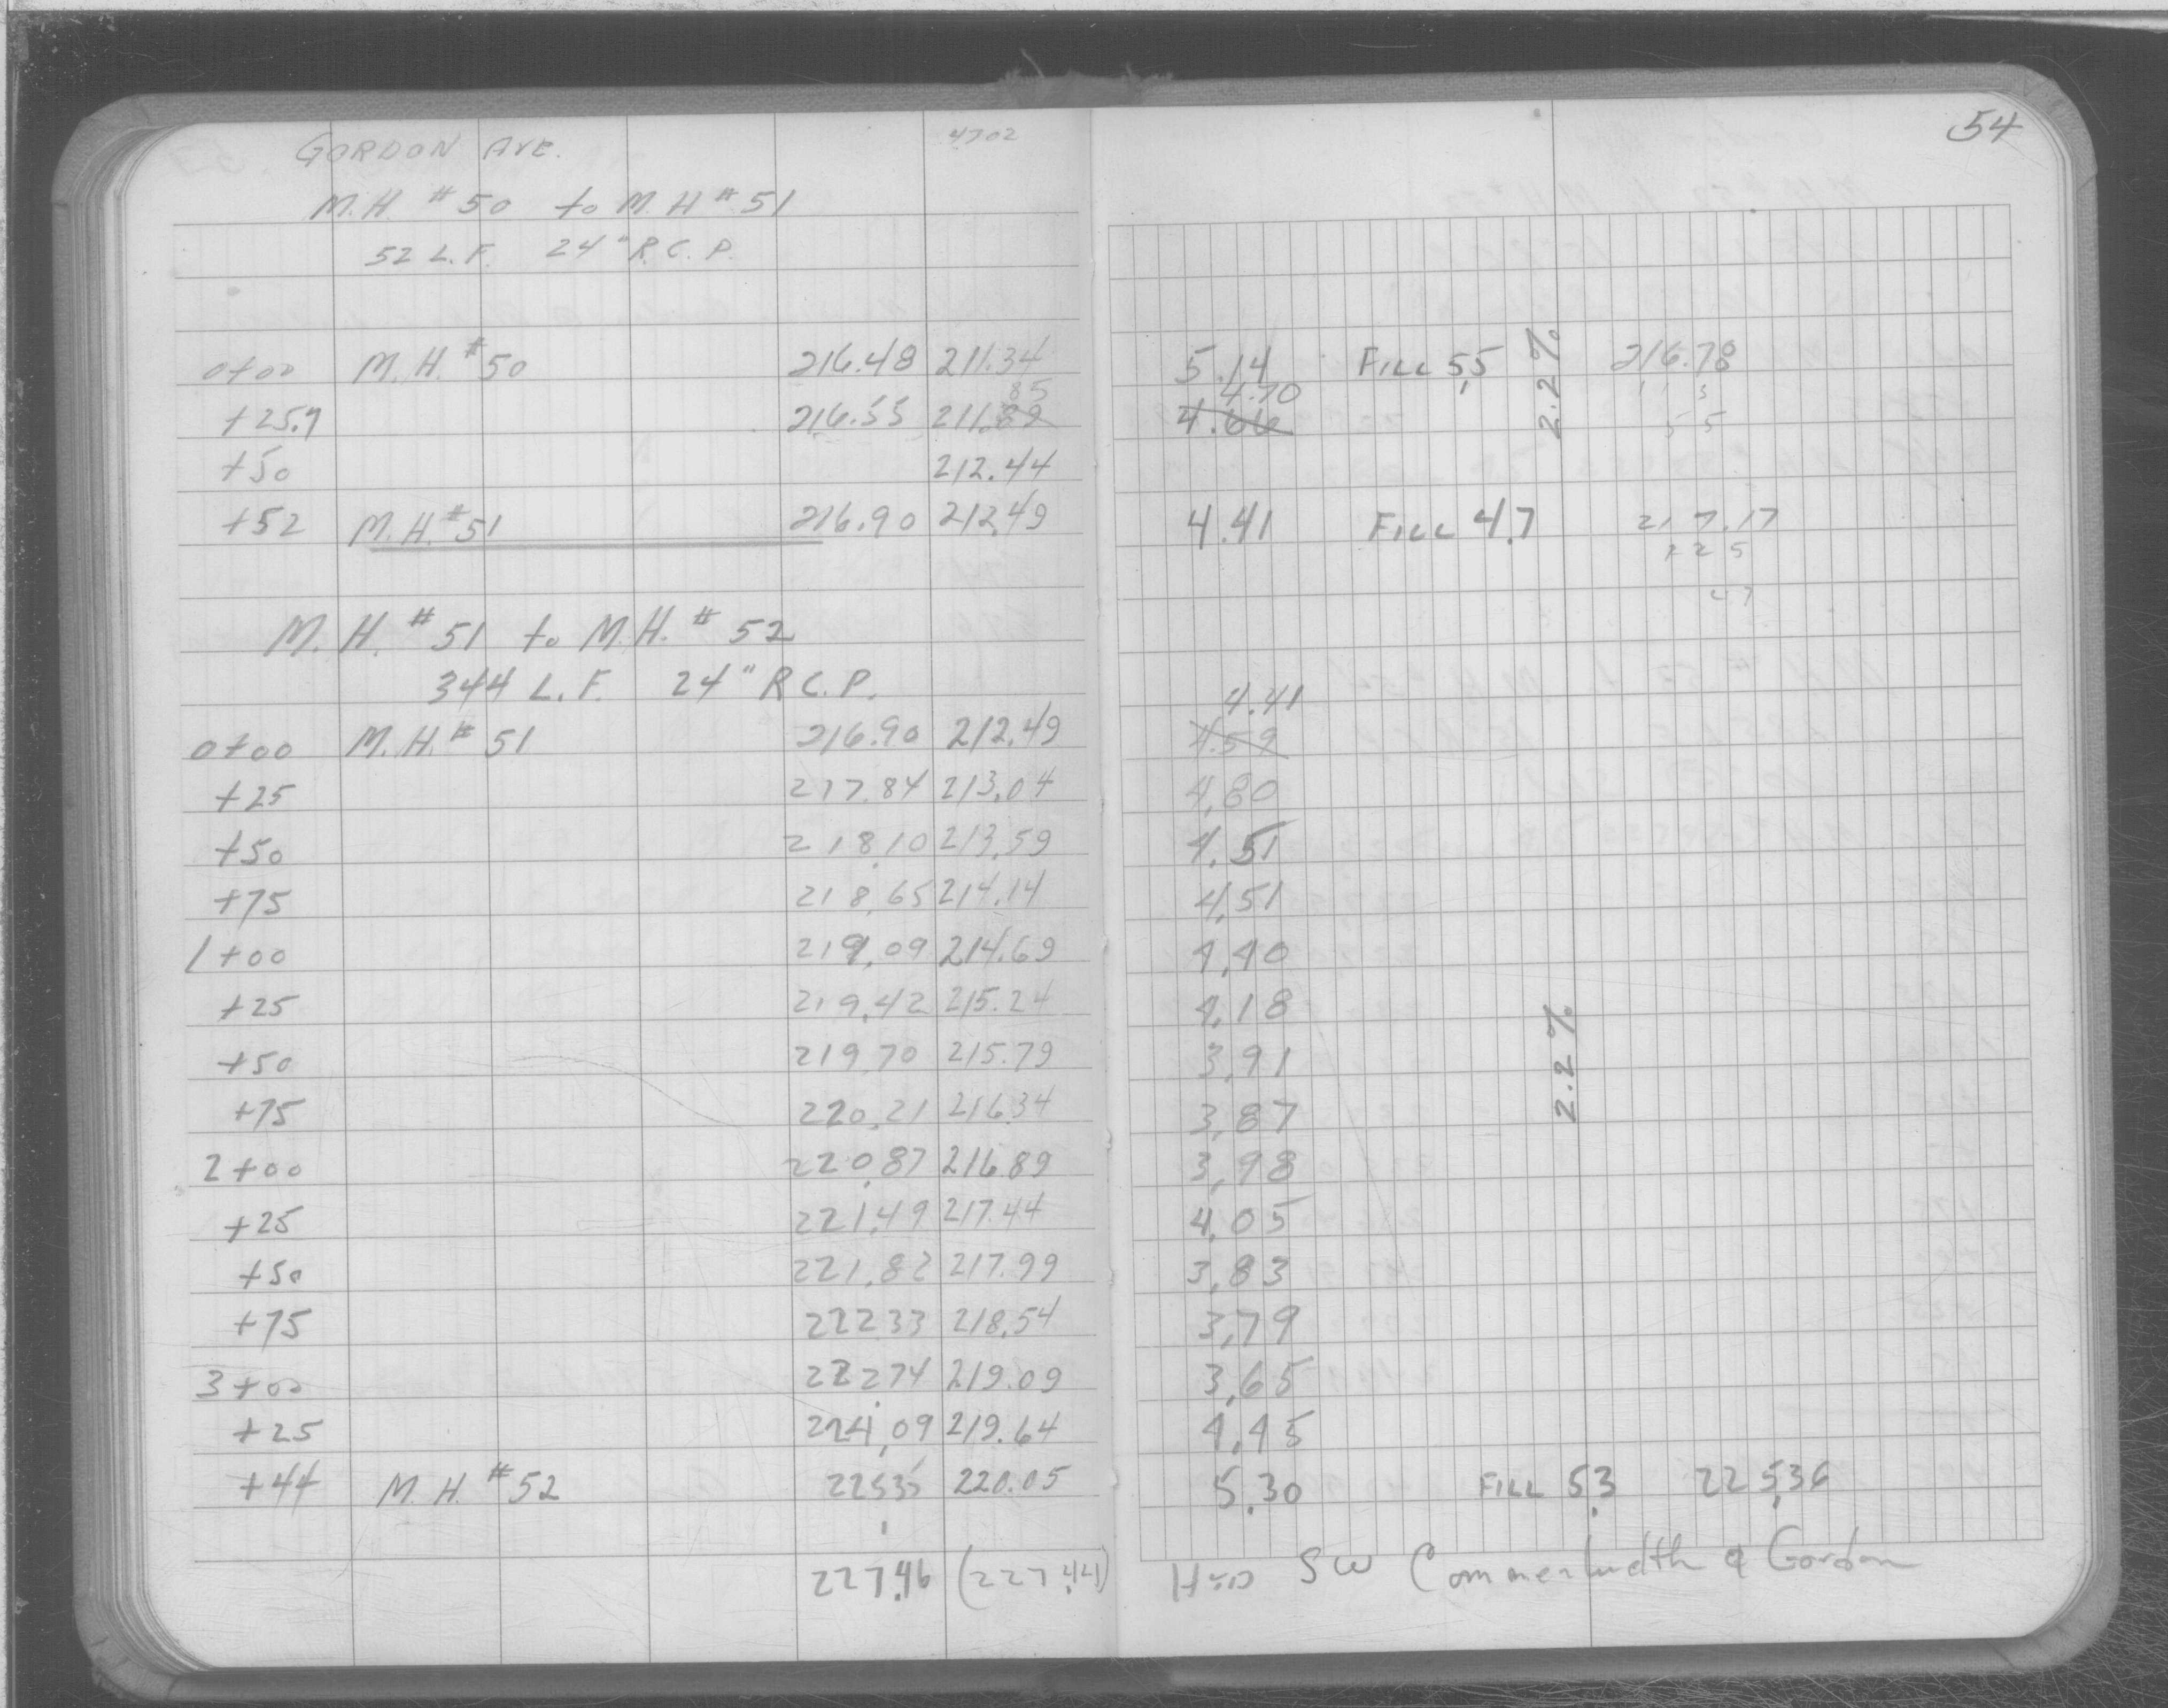 54
GORDON AVE. 4702
M.H. #50 to M.H #51
52 L.F. 24" R.C.P.
0+00 M.H. #50 216.48 211.34 5.14 FILL 5.5 2.2% 216.78
85 4.70
+25.9 216.55 211.89 4.66 55
+50 212.44
+52 M.H. #51 216.90 212.49 4.41 FILL 4.7 217.17
M.H. #51 to M.H. #52
344 L.F. 24" R.C.P. 4.41
0+00 M.H. #51 216.90 212.49 4.59
+25 217.84 213.04 4.80
+50 218.10 213.59 4.51
+75 218.65 214.14 4.51
1+00 219.09 214.69 4.40
+25 219.42 215.24 4.18
+50 219.70 215.79 3.91 2.2%
+75 220.21 216.34 3.87
2+00 220.87 216.89 3.98
+25 221.49 217.44 4.05
+50 221.82 217.99 3.83
+75 222.33 218.54 3.79
3+00 222.74 219.09 3.65
+25 224.09 219.64 4.45
+44 M.H. #52 225.35 220.05 5.30 FILL 5.3 225.36
227.46 (227.44) HYD SW Commenludth & Gordon